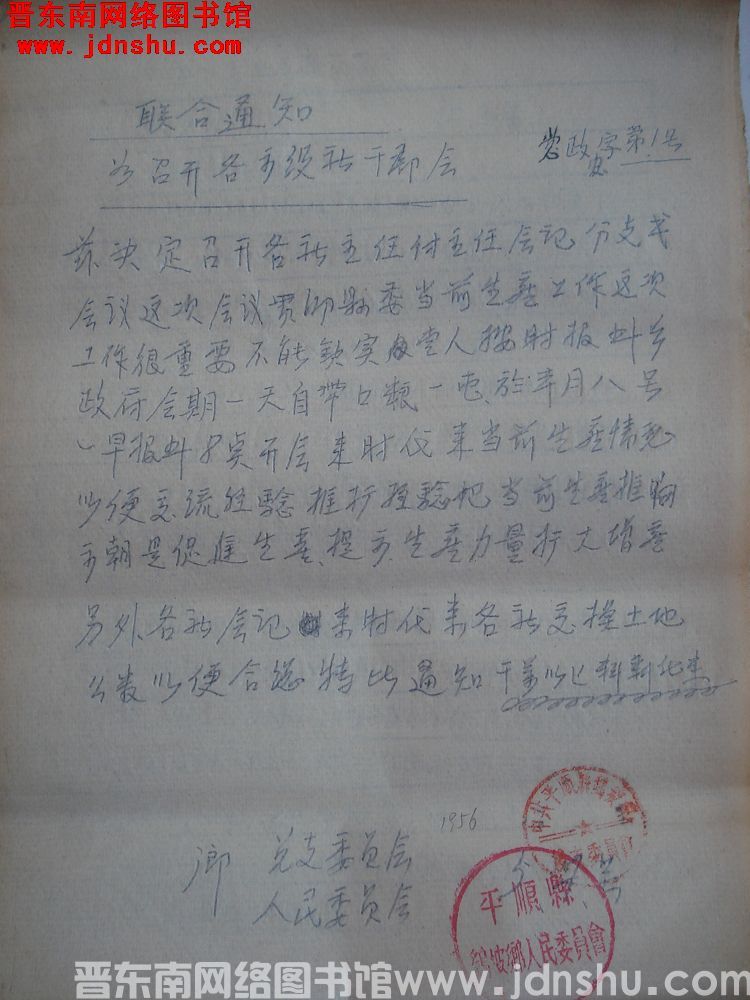 晋东南网络图书馆
www.jdnshu.com
联合通知
为召开各方级社干部会
党政字第1号
兹决定召开各社主任付主任会记分支书
会议这次会议贯彻县委当前生产工作这次
工作很重要不能缺实本人按时报到乡
政府会期一天自带口粮一屯、於本月八号
一早报到8点开会来时代来当前生产情况
以便交流经验推行经验把当前生产推向
高朝是促进生产、提高生产力量扩大增产
另外各社会记来时代来各社交换土地
公数以便合总特此通知千万以上
1956
乡
党支委员会
人民委员会
中共平顺县
委员会
平顺县
乡人民委员会
晋东南网络图书馆www.jdnshu.com